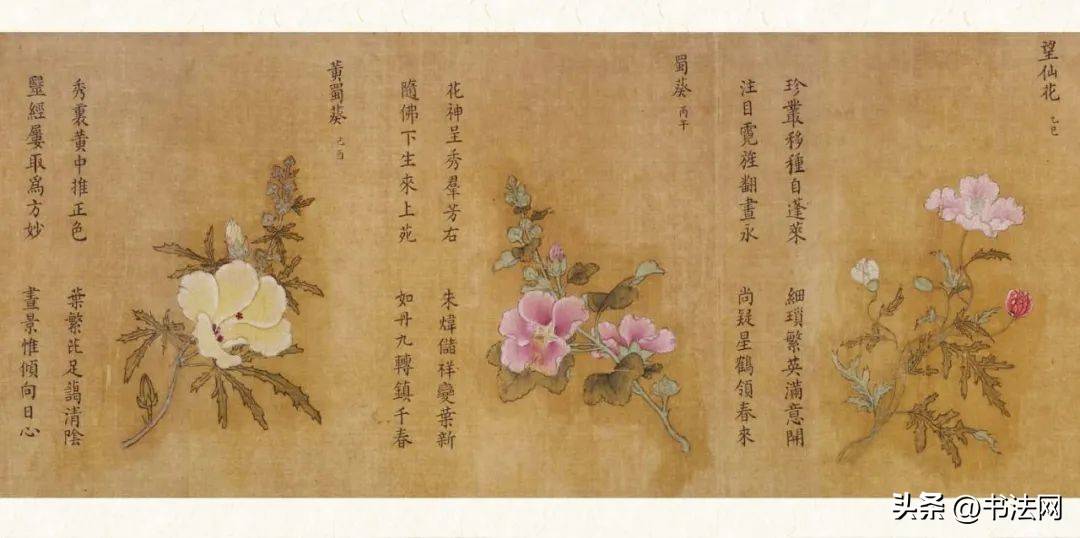 望仙花 乙巳
珍叢移種自蓬萊 細瑣繁英滿意開
注目霓旌翻晝永 尚疑星鶴領春來
蜀葵 丙午
花神呈秀羣芳右 朱煒儲祥變葉新
隨佛下生來上苑 如丹九轉鎮千春
黃蜀葵 己酉
秀裏黃中推正色 葉繁芘足藹清陰
毉經屢取爲方妙 晝景惟傾向日心
头条 @书法网